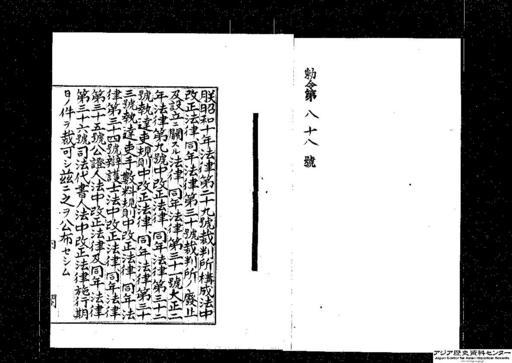 勅令第八十八號
朕昭和十年法律第二十九號裁判所構成法中
改正法律、同年法律第三十號裁判所ノ廢止
及設立ニ關スル法律、同年法律第三十一號大正二
年法律第九號中改正法律、同年法律第三十二
號執達吏規則中改正法律、同年法律第三十
三號執達吏手數料規則中改正法律、同年法
律第三十四號辯護士法中改正法律、同年法律
第三十五號公證人法中改正法律及同年法律
第三十六號司法代書人法中改正法律施行期
日ノ件ヲ裁可シ茲ニ之ヲ公布セシム
内閣
アジア歴史資料センター
Japan Center for Asian Historical Records